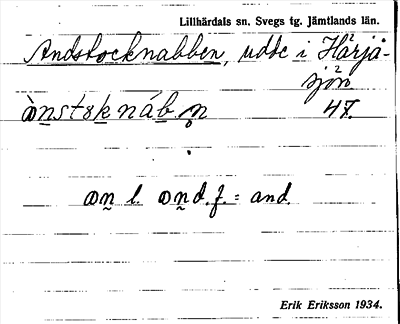 Lillhärdals sn. Svegs tg. Jämtlands län.
Andstocknabben, udde i Härjå-
sjön
ȯnstɷknáb.n̥ 47.
ɷn l. ɷnd. f. = and.
Erik Eriksson 1934.